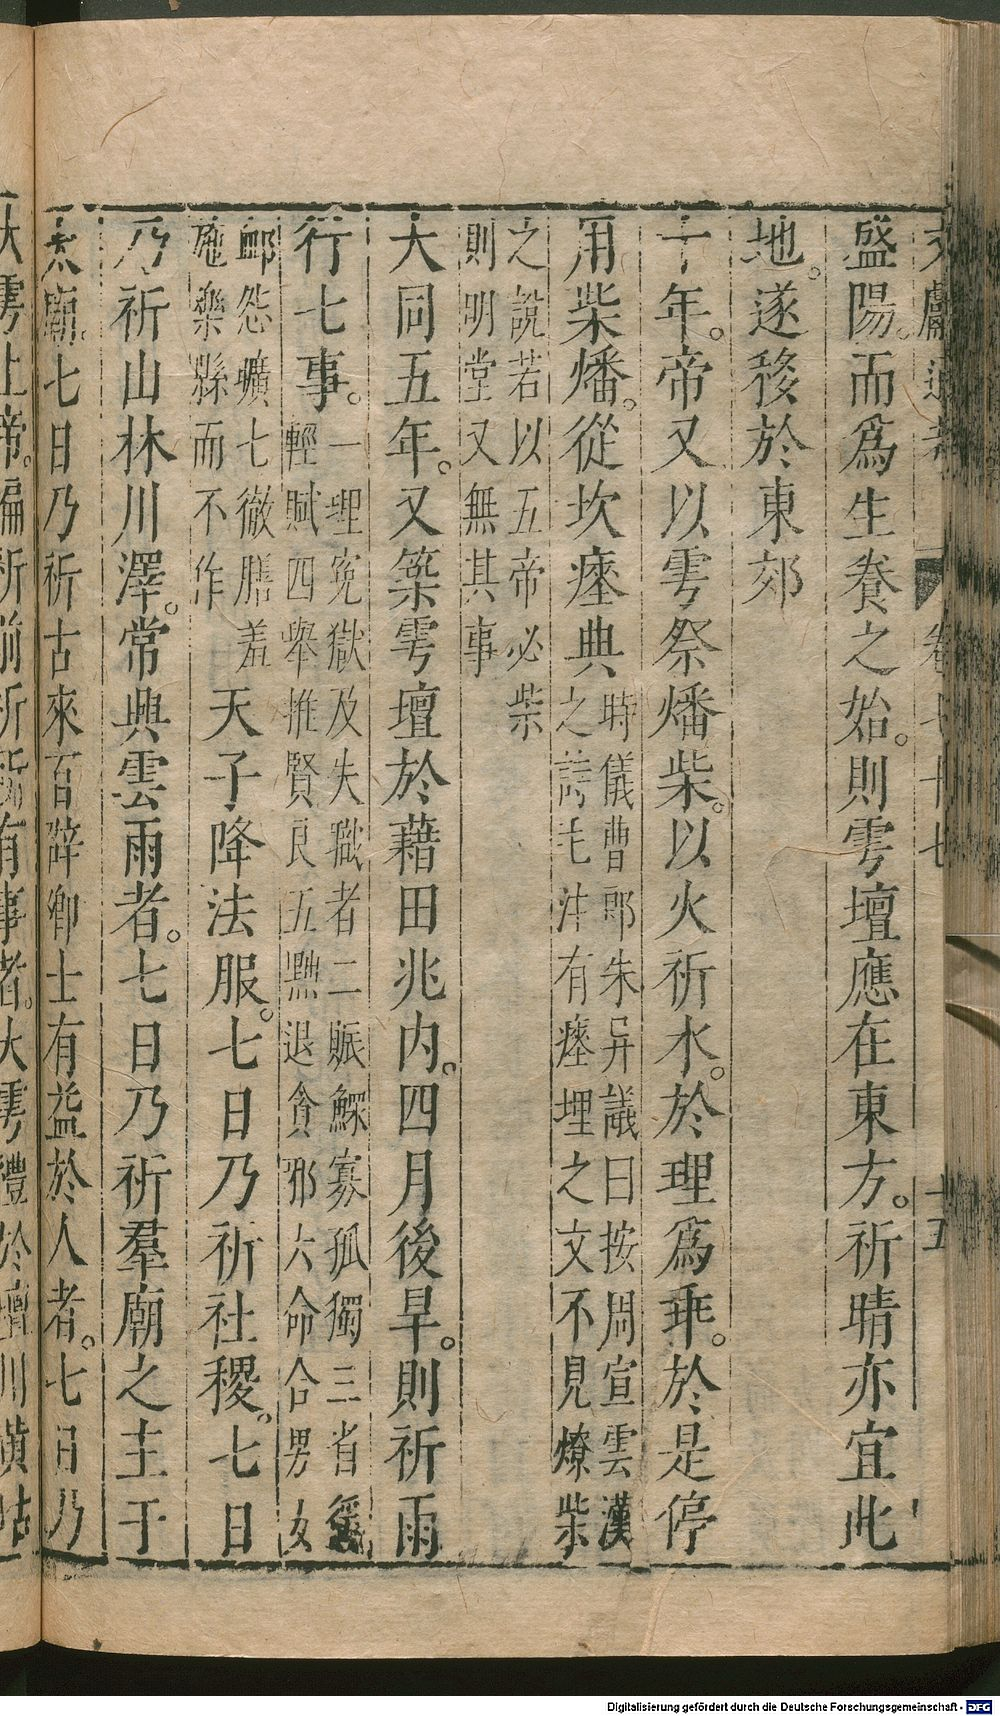 文獻通考 卷七十七 十五
盛陽而爲生養之始。則雩壇應在東方。祈晴亦宜此
地。遂移於東郊
十年。帝又以雩祭燔柴。以火祈水。於理爲乖。於是停
用柴燔。從坎瘞典
時儀曹郎朱异議曰按周宣雲漢
之詩毛注有瘞埋之文不見燎柴
之說若以五帝必柴
則明堂又無其事
大同五年。又築雩壇於藉田兆内。四月後旱。則祈雨
行七事。
一理寃獄及失職者二賑鰥寡孤獨三省徭
輕賦四舉推賢良五黜退貪邪六命合男女
䘏怨曠七徹膳羞
弛樂縣而不作
天子降法服。七日乃祈社稷。七日
乃祈山林川澤。常興雲雨者。七日乃祈羣廟之主于
太廟。七日乃祈古來百辟卿士有益於人者。七日乃
大雩上帝。徧祈前祈所有事者。大雩禮於壇